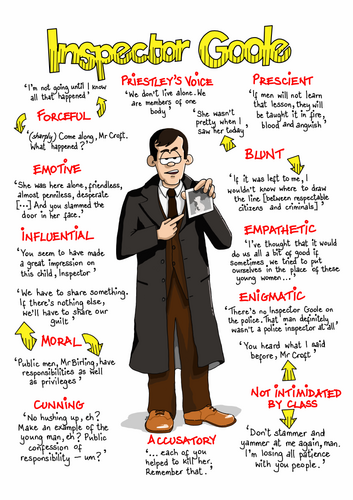 Inspector Goole
'I'm not going until I know
all that happened'
FORCEFUL
'(sharply) Come along, Mr Croft.
What happened?'
EMOTIVE
'She was here alone, friendless,
almost penniless, desperate
[...] And you slammed the
door in her face.'
INFLUENTIAL
'You seem to have made
a great impression on
this child, Inspector'
'We have to share something.
If there's nothing else,
we'll have to share our
guilt'
MORAL
'Public men, Mr Birling, have
responsibilities as well
as privileges'
CUNNING
'No hushing up, eh?
Make an example of the
young man, eh? Public
confession of
responsibility – um?'
PRIESTLEY'S VOICE
'We don't live alone. We are
members of one
body'
'She wasn't
pretty when I
saw her today'
ACCUSATORY
'... each of you
helped to kill her.
Remember that.'
PRESCIENT
'If men will not learn
that lesson, they will
be taught it in fire,
blood and anguish'
BLUNT
'If it was left to me, I
wouldn't know where to draw
the line [between respectable
citizens and criminals]'
EMPATHETIC
'I've thought that it would
do us all a bit of good if
sometimes we tried to put
ourselves in the place of these
young women...'
ENIGMATIC
'There's no Inspector Goole on
the police. That man definitely
wasn't a police inspector at all'
'You heard what I said
before, Mr Croft'
NOT INTIMIDATED
BY CLASS
'Don't stammer and
yammer at me again, man.
I'm losing all patience
with you people.'